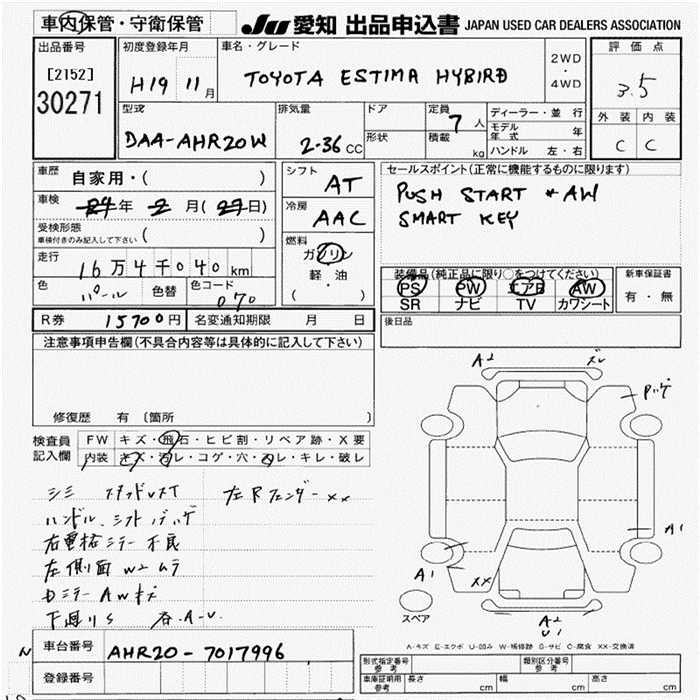 車内保管・守衛保管
JU 愛知 出品申込書 JAPAN USED CAR DEALERS ASSOCIATION
出品番号
[2152]
30271
初度登録年月
H19 11月
車名・グレード
TOYOTA ESTIMA HYBIRD
2WD
・
4WD
評価点
3.5
外装 内装
C C
型式
DAA-AHR20W
排気量
2-36 CC
ドア
形状
定員
7人
積載
kg
ディーラー・並行
モデル年式 年
ハンドル 左・右
車歴
自家用・( )
車検
24年 2月(27日)
受検形態
車検付きのみ記入して下さい ( )
走行
16万4千040km
色
パール
色替
色コード
070
シフト
AT
冷房
AAC
燃料
ガソリン
軽・油
( )
セールスポイント(正常に機能するものに限ります)
PUSH START * AW
SMART KEY
装備品(純正品に限り○をつけてください)
PS PW エアB AW
SR ナビ TV カワシート
新車保証書
有・無
R券 15700円 名変通知期限 月 日
後日品
注意事項申告欄(不具合内容等は具体的に記入して下さい)
修復歴 有 〔箇所 〕
検査員記入欄
FW キズ・飛石・ヒビ割・リペア跡・X要
内装 キズ・汚レ・コゲ・穴・スレ・キレ・破レ
シミ
左Rフェンダー xx
ハンドル、シフト ハゲ
右電格ミラー不良
左側面 W2 ムラ
Dミラー AWキズ
下廻りS
A2
ズレ
Pハゲ
A1
A1
xx
A2
U1
スペア
A-キズ E-エクボ U-凹み W-補修跡 S-サビ C-腐食 XX-交換済
車台番号 AHR20-7017996
登録番号
形式指定番号 参考
類別区分番号 参考
車庫証明用 参考 長さ cm 幅 cm 高さ cm